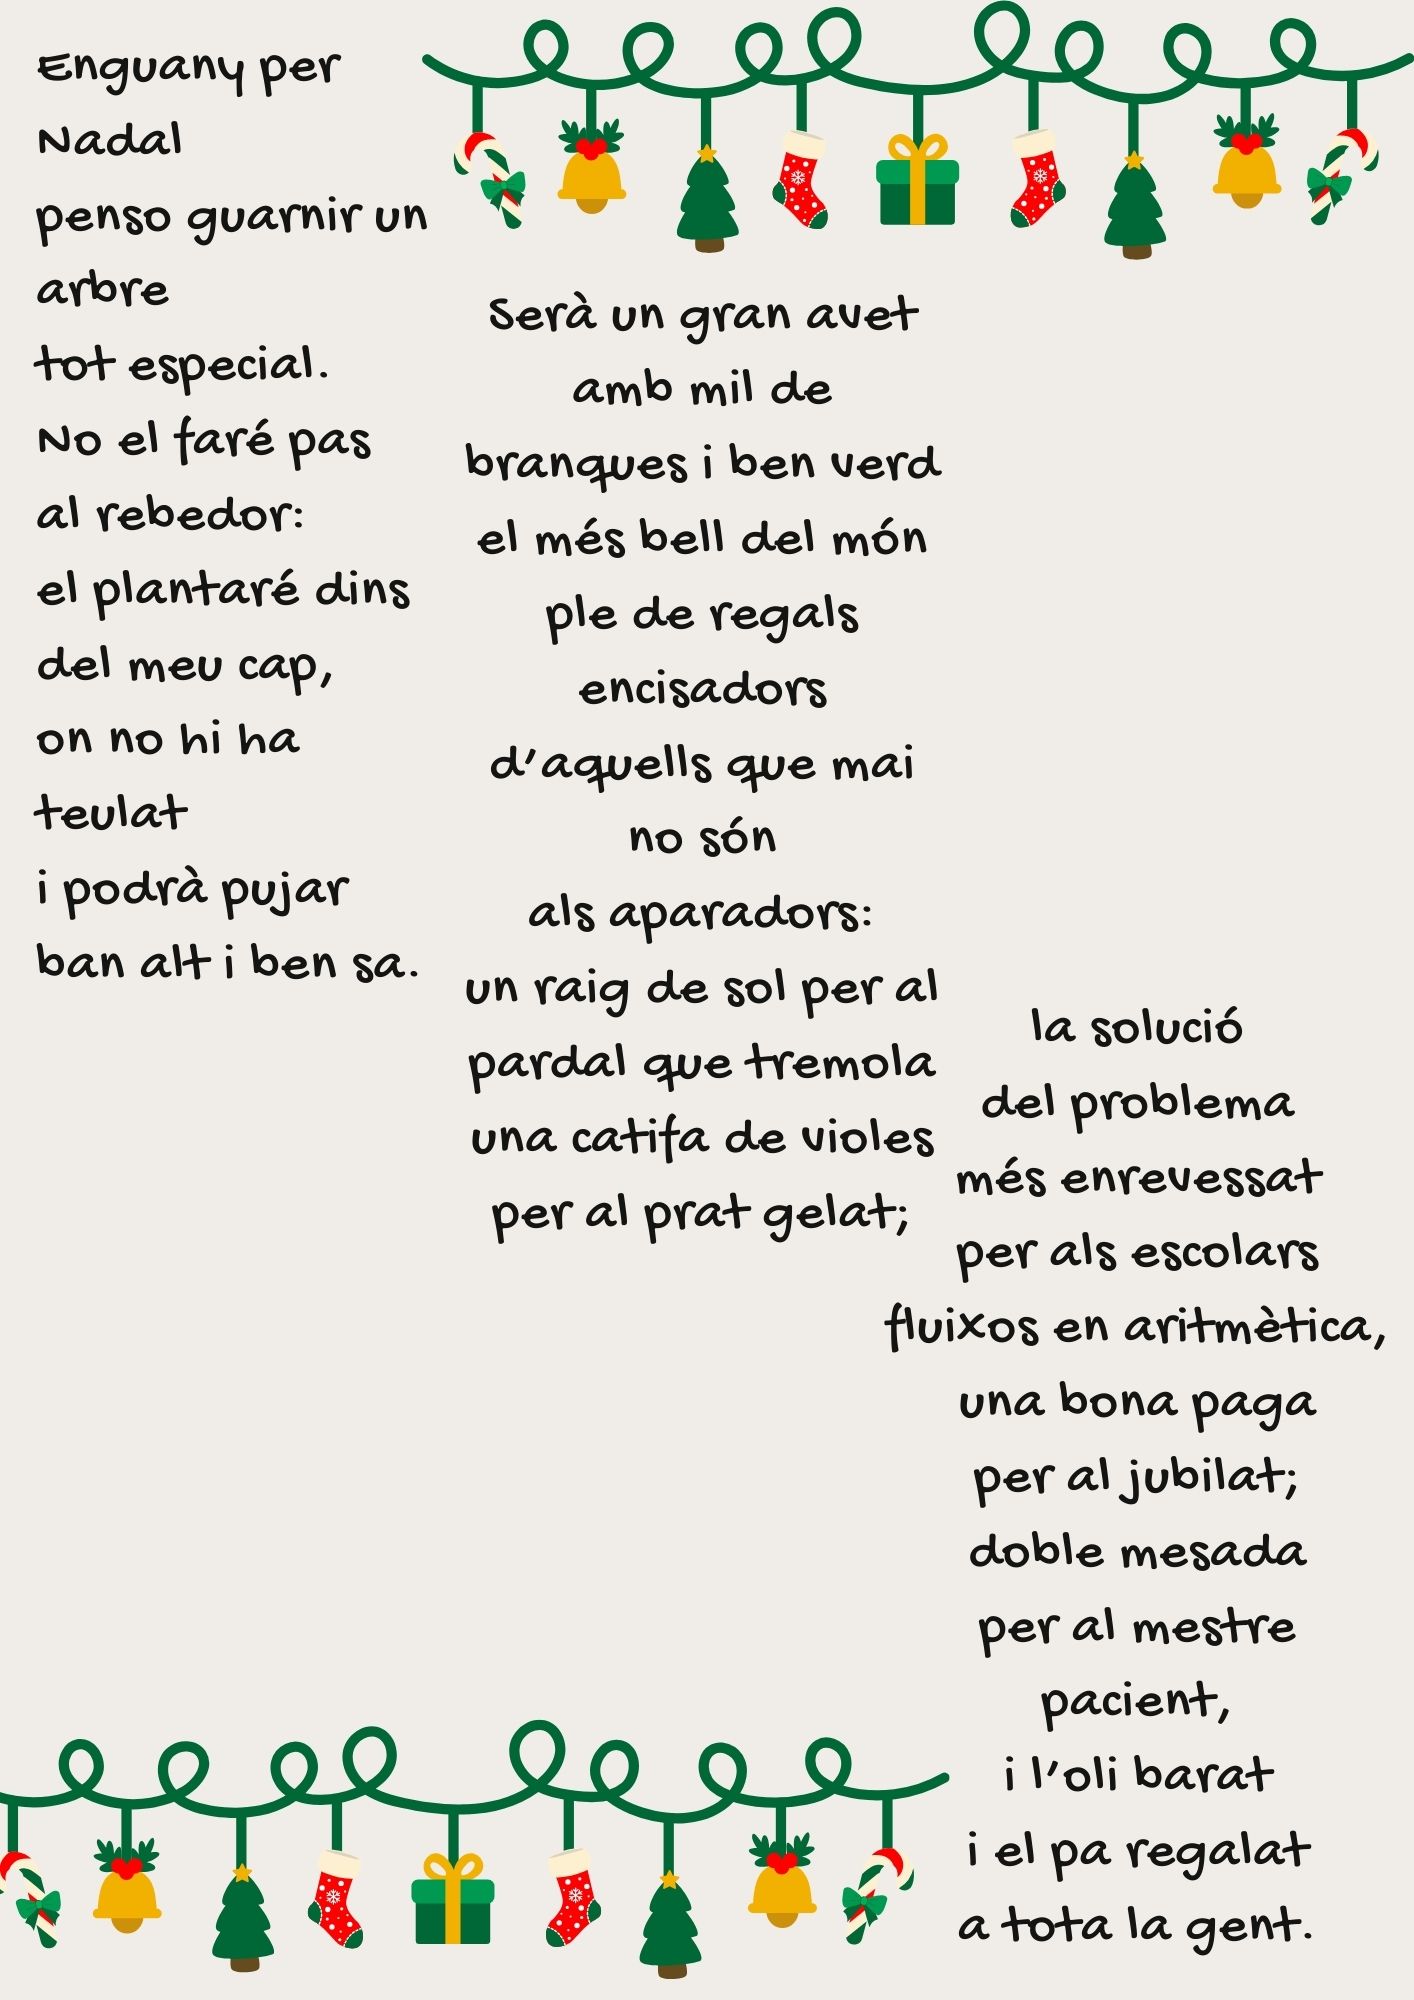 Enguany per
Nadal
penso guarnir un
arbre
tot especial.
No el faré pas
al rebedor:
el plantaré dins
del meu cap,
on no hi ha
teulat
i podrà pujar
ban alt i ben sa.
Serà un gran avet
amb mil de
branques i ben verd
el més bell del món
ple de regals
encisadors
d'aquells que mai
no són
als aparadors:
un raig de sol per al
pardal que tremola
una catifa de violes
per al prat gelat;
la solució
del problema
més enrevessat
per als escolars
fluixos en aritmètica,
una bona paga
per al jubilat;
doble mesada
per al mestre
pacient,
i l'oli barat
i el pa regalat
a tota la gent.